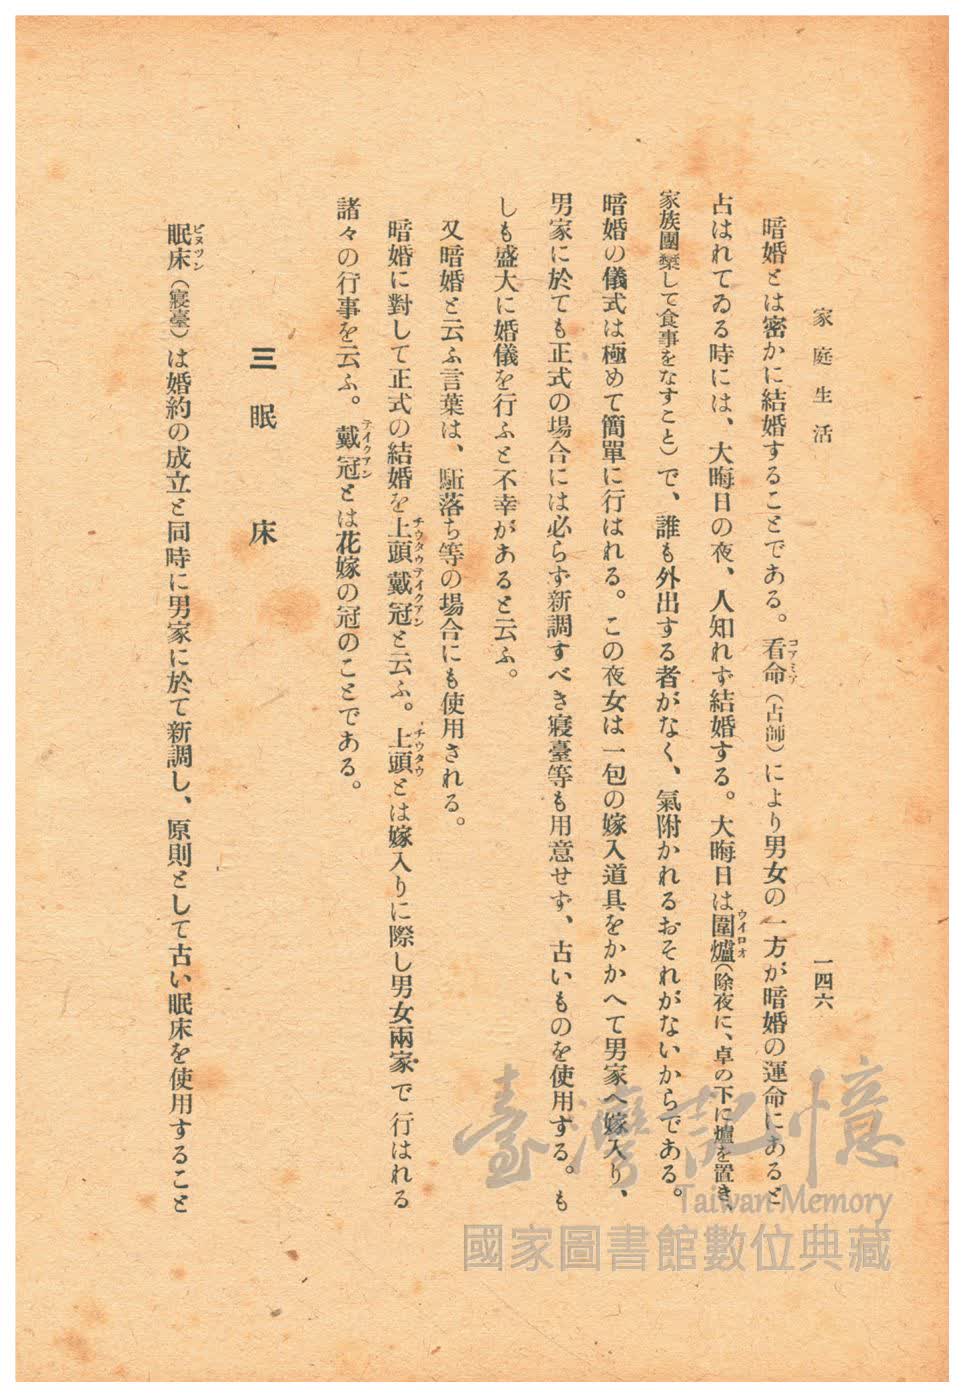 家庭生活
一四六
暗婚とは密かに結婚することである。看命（占師）により男女の一方が暗婚の運命にあると
コアミア
占はれてゐる時には、大晦日の夜、人知れず結婚する。大晦日は圍爐（除夜に、卓の下に爐を置き、
ウイロオ
家族團欒して食事をなすこと）で、誰も外出する者がなく、氣附かれるおそれがないからである。
暗婚の儀式は極めて簡單に行はれる。この夜女は一包の嫁入道具をかかへて男家へ嫁入り、
男家に於ても正式の場合には必らず新調すべき寢臺等も用意せず、古いものを使用する。も
しも盛大に婚儀を行ふと不幸があると云ふ。
又暗婚と云ふ言葉は、駈落ち等の場合にも使用される。
暗婚に對して正式の結婚を上頭戴冠と云ふ。上頭とは嫁入りに際し男女兩家で行はれる
チウタウテイクアン
チウタウ
諸々の行事を云ふ。戴冠とは花嫁の冠のことである。
テイクアン
三 眠床
眠床（寢臺）は婚約の成立と同時に男家に於て新調し、原則として古い眠床を使用すること
ビヌツン
臺灣記憶
Taiwan Memory
國家圖書館數位典藏